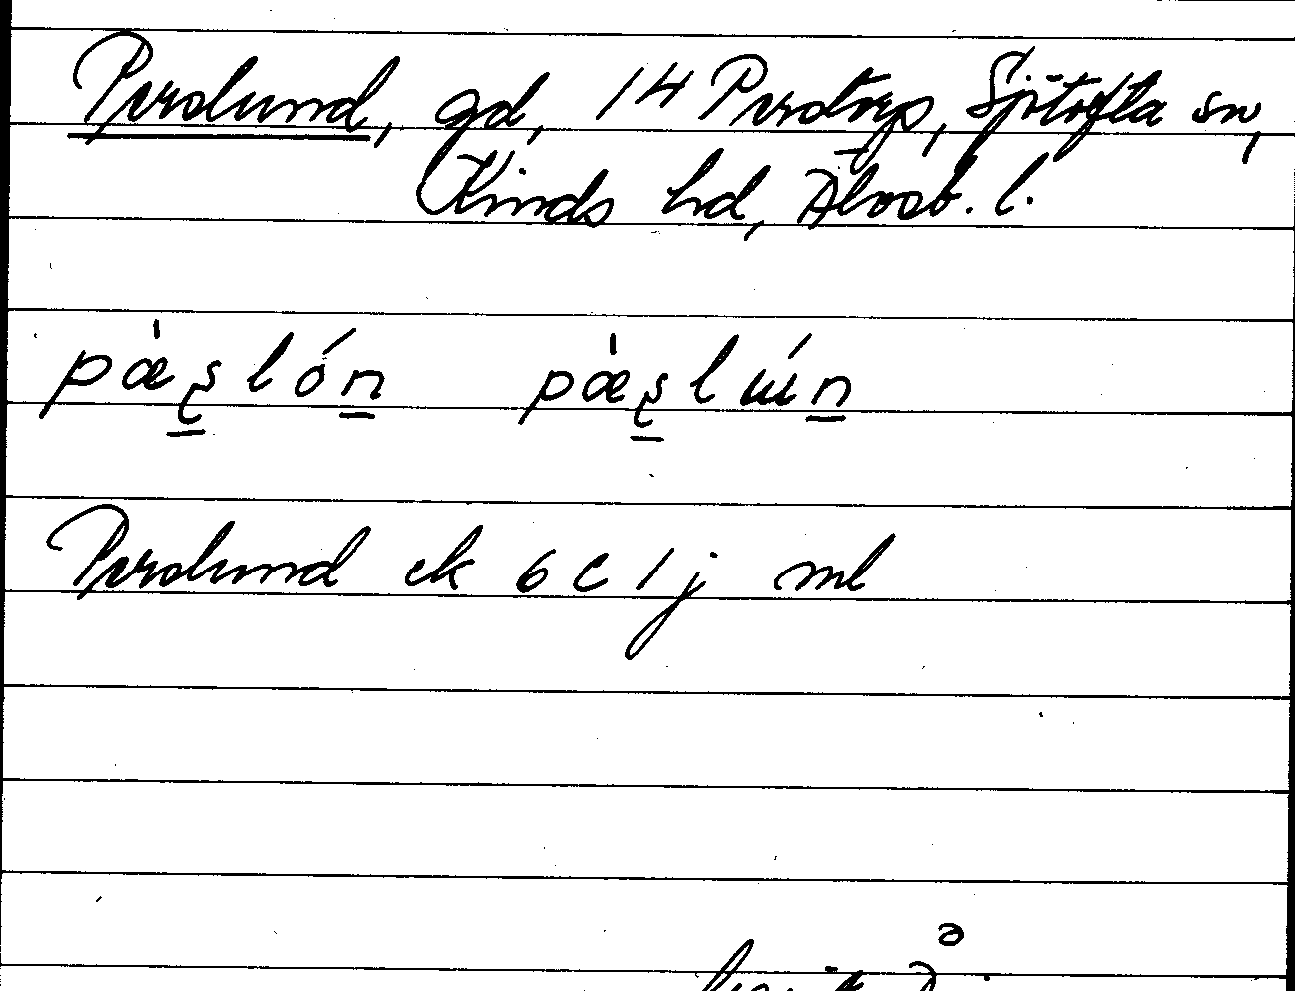 Perslund, gd, 14 Perstorp, Sjötofta sn,
Kinds hd, Älvsb. l.
pæ̀ʂlón pæ̀ʂlɯ́n
Perslund ek 6 C 1 j ml